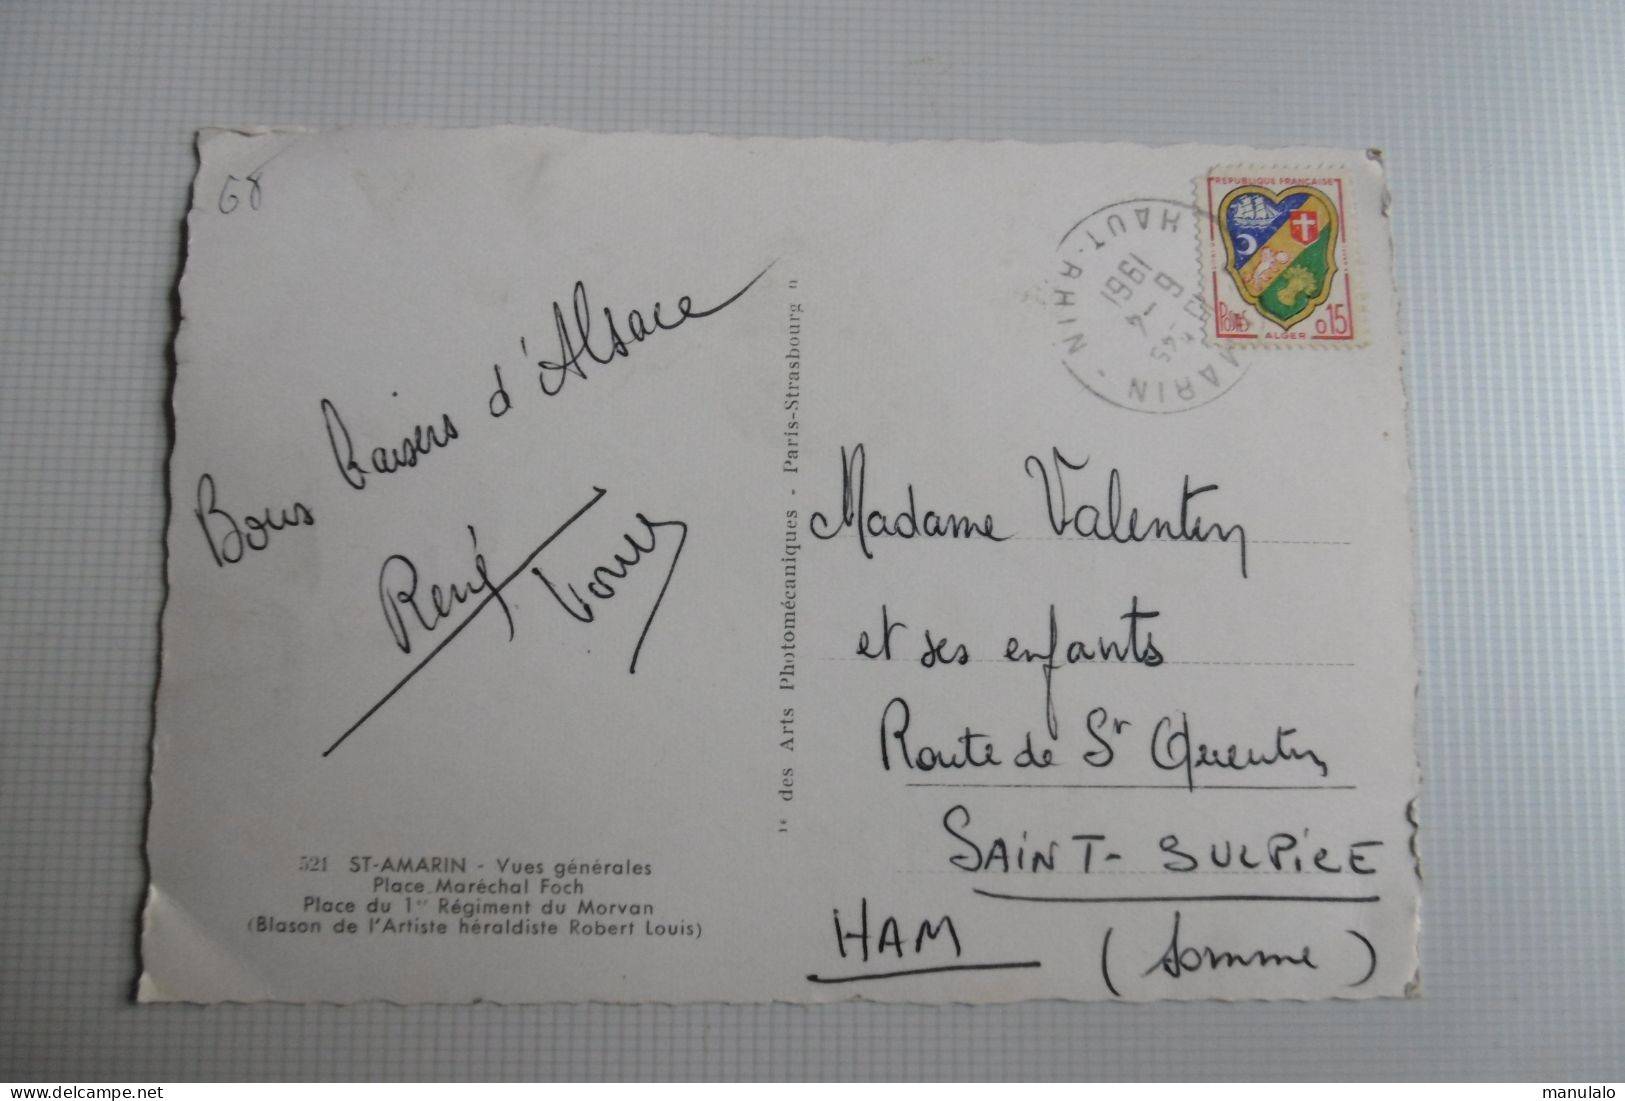 68
Bons baisers d'Alsace
René
521 ST-AMARIN - Vues générales
Place Maréchal Foch
Place du 1er Régiment du Morvan
(Blason de l'Artiste héraldiste Robert Louis)
des Arts Photomécaniques - Paris-Strasbourg
RÉPUBLIQUE FRANÇAISE
POSTES
0,15
ALGER
MARIN
HAUT-RHIN
1961
Madame Valentin
et ses enfants
Route de St Quentin
SAINT-SULPICE
HAM (Somme)
manulalo